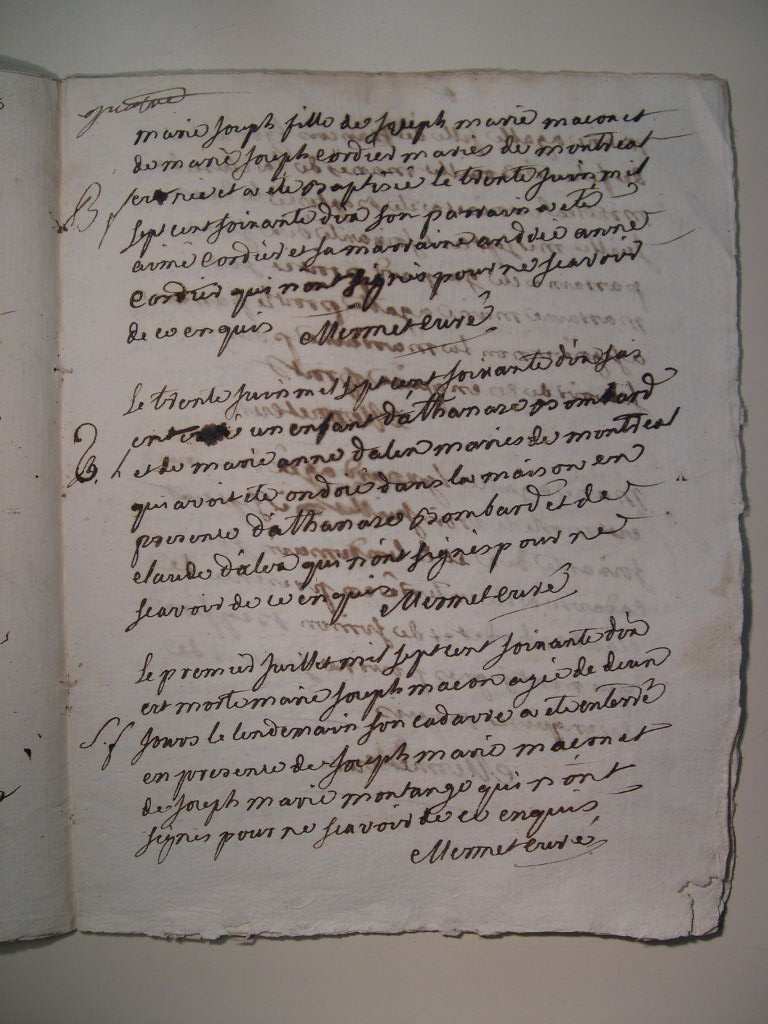 quatre
marie Joseph fille de Joseph marie macon et
de marie Joseph Cordier mariés de montreal
est née et a été Baptisée le trente Juin mil
B f
sept cent soixante dix son parrain a été
aimé Cordier et sa marraine andrée anne
Cordier qui n'ont signés pour ne scavoir
de ce enquis Mermet curé
Le trente Juin mil sept cent soixante dix fus
enterré un enfant d'athanase Bombard
B.
et de marie anne d'alex mariés de montreal
qui avoit été ondoié dans la maison en
presence d'athanase Bombard et de
claude d'alex qui n'ont signés pour ne
scavoir de ce enquis Mermet curé
Le premier Juillet mil sept cent soixante dix
est morte marie Joseph macon agée de deux
S. f
Jours le lendemain son cadavre a été enterré
en presence de Joseph marie maçon et
de Joseph marie montange qui n'ont
signés pour ne scavoir de ce enquis
Mermet curé